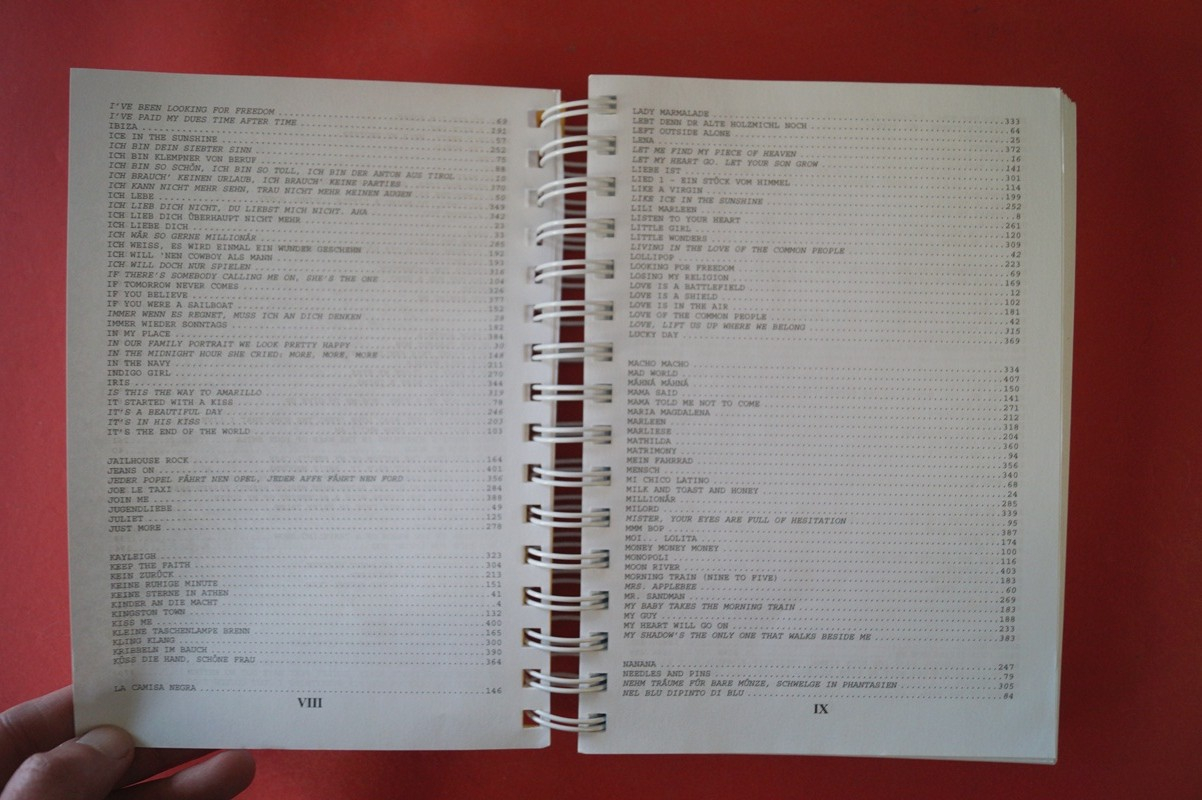 I'VE BEEN LOOKING FOR FREEDOM 69
I'VE PAID MY DUES TIME AFTER TIME 191
IBIZA 57
ICE IN THE SUNSHINE 252
ICH BIN DEIN SIEBTER SINN 75
ICH BIN KLEMPNER VON BERUF 88
ICH BIN SO SCHÖN, ICH BIN SO TOLL, ICH BIN DER ANTON AUS TIROL
ICH BRAUCH' KEINEN URLAUB, ICH BRAUCH' KEINE PARTIES 370
ICH KANN NICHT MEHR SEHN, TRAU NICHT MEHR MEINEN AUGEN 50
ICH LEBE 349
ICH LIEB DICH NICHT, DU LIEBST MICH NICHT, AHA 342
ICH LIEB DICH ÜBERHAUPT NICHT MEHR
ICH LIEBE DICH 33
ICH WÄR SO GERNE MILLIONÄR 285
ICH WEISS, ES WIRD EINMAL EIN WUNDER GESCHEHN 192
ICH WILL 'NEN COWBOY ALS MANN 193
ICH WILL DOCH NUR SPIELEN 316
IF THERE'S SOMEBODY CALLING ME ON, SHE'S THE ONE 104
IF TOMORROW NEVER COMES 326
IF YOU BELIEVE 277
IF YOU WERE A SAILBOAT 152
IMMER WENN ES REGNET, MUSS ICH AN DICH DENKEN 28
IMMER WIEDER SONNTAGS 182
IN MY PLACE 384
IN OUR FAMILY PORTRAIT WE LOOK PRETTY HAPPY 30
IN THE MIDNIGHT HOUR SHE CRIED: MORE, MORE, MORE 149
IN THE NAVY 211
INDIGO GIRL 270
IRIS 344
IS THIS THE WAY TO AMARILLO 319
IT STARTED WITH A KISS 76
IT'S A BEAUTIFUL DAY 246
IT'S IN HIS KISS 203
IT'S THE END OF THE WORLD 103
JAILHOUSE ROCK 164
JEANS ON 401
JEDER POPEL FÄHRT NEN OPEL, JEDER AFFE FÄHRT NEN FORD 356
JOE LE TAXI 284
JOIN ME 388
JUGENDLIEBE 49
JULIET 125
JUST MORE 278
KAYLEIGH 323
KEEP THE FAITH 304
KEIN ZURÜCK 213
KEINE RUHIGE MINUTE 151
KEINE STERNE IN ATHEN 41
KINDER AN DIE MACHT 4
KINGSTON TOWN 132
KISS ME 400
KLEINE TASCHENLAMPE BRENN 165
KLING KLANG 300
KRIBBELN IM BAUCH 390
KÜSS DIE HAND, SCHÖNE FRAU 364
LA CAMISA NEGRA 146
VIII
LADY MARMALADE 333
LEBT DENN DR ALTE HOLZMICHL NOCH 64
LEFT OUTSIDE ALONE 25
LENA 372
LET ME FIND MY PIECE OF HEAVEN 16
LET MY HEART GO. LET YOUR SON GROW 141
LIEBE IST 301
LIED 1 - EIN STÜCK VOM HIMMEL 114
LIKE A VIRGIN 199
LIKE ICE IN THE SUNSHINE 252
LILI MARLEEN 8
LISTEN TO YOUR HEART 261
LITTLE GIRL 120
LITTLE WONDERS 309
LIVING IN THE LOVE OF THE COMMON PEOPLE 42
LOLLIPOP 223
LOOKING FOR FREEDOM 69
LOSING MY RELIGION 169
LOVE IS A BATTLEFIELD 12
LOVE IS A SHIELD 102
LOVE IS IN THE AIR 181
LOVE OF THE COMMON PEOPLE 42
LOVE, LIFT US UP WHERE WE BELONG 315
LUCKY DAY 369
MACHO MACHO 334
MAD WORLD 407
MÄHNÄ MÄHNÄ 150
MAMA SAID 141
MAMA TOLD ME NOT TO COME 271
MARIA MAGDALENA 212
MARLEEN 318
MARLIESE 204
MATHILDA 360
MATRIMONY 94
MEIN FAHRRAD 356
MENSCH 340
MI CHICO LATINO 68
MILK AND TOAST AND HONEY 24
MILLIONÄR 285
MILORD 339
MISTER, YOUR EYES ARE FULL OF HESITATION 95
MMM BOP 387
MOI... LOLITA 174
MONEY MONEY MONEY 100
MONOPOLI 116
MOON RIVER 403
MORNING TRAIN (NINE TO FIVE) 183
MRS. APPLEBEE 60
MR. SANDMAN 269
MY BABY TAKES THE MORNING TRAIN 183
MY GUY 188
MY HEART WILL GO ON 233
MY SHADOW'S THE ONLY ONE THAT WALKS BESIDE ME 383
NANANA 247
NEEDLES AND PINS 79
NEHM TRÄUME FÜR BARE MÜNZE, SCHWELGE IN PHANTASIEN 305
NEL BLU DIPINTO DI BLU 84
IX